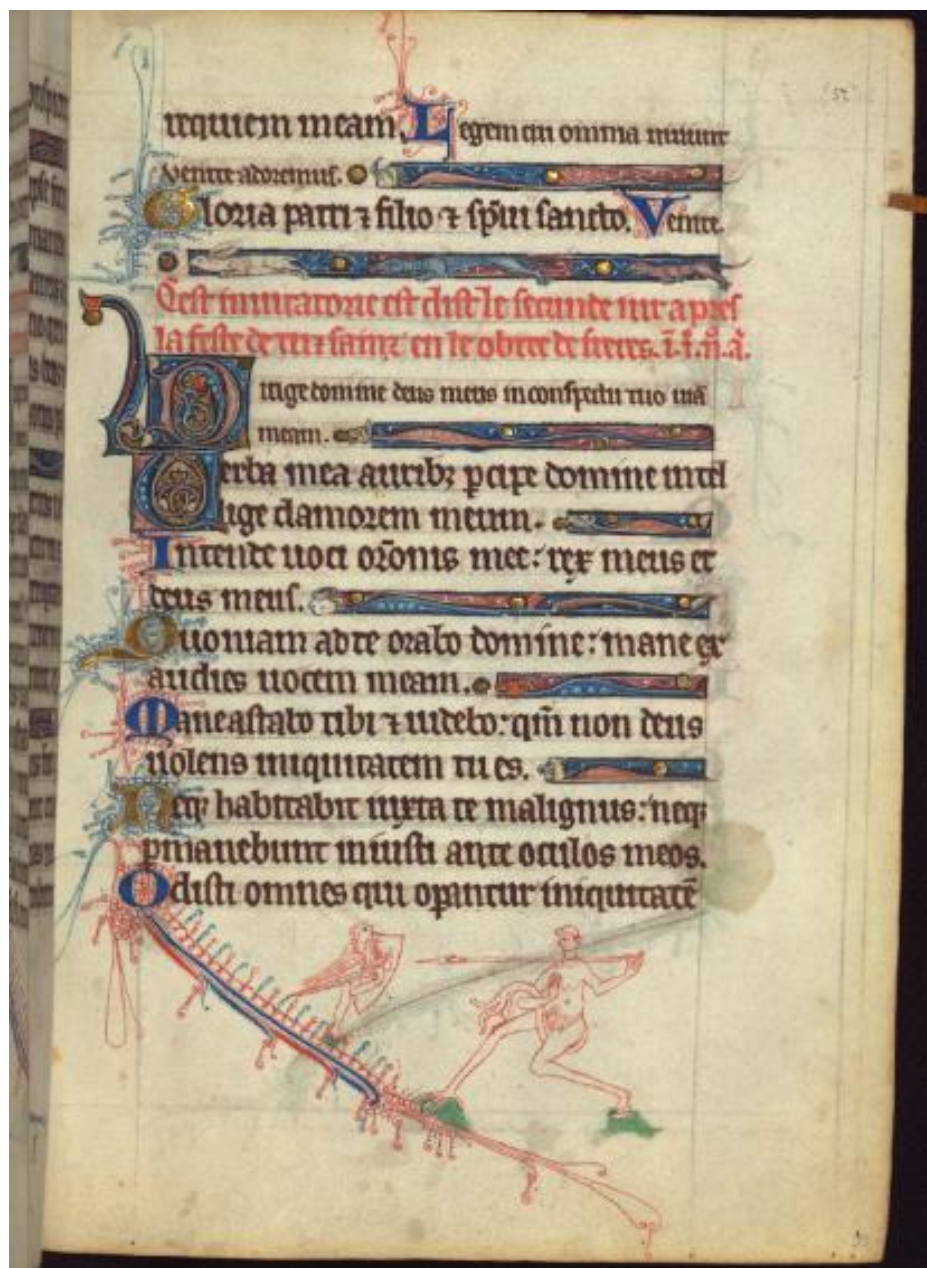 requiem meam. Regem cui omnia uiuunt
uenite adoremus.
Gloria patri ⁊ filio ⁊ sp̄ui sancto. Venite.
Cest inuitatorie est dist le secunde iur apres
la feste de touz sainz en le obit de freres.
Dirige domine deus meus in conspectu tuo uiā
meam.
Verba mea auribꝫ ꝑcipe domine intel
lige clamorem meum.
Intende uoci or̄onis mee: rex meus et
deus meus.
Quoniam ad te orabo domine: mane ex
audies uocem meam.
Mane astabo tibi ⁊ uidebo: qm̄ non deus
uolens iniquitatem tu es.
Neqꝫ habitabit iuxta te malignus: neqꝫ
ꝑmanebunt iniusti ante oculos meos.
Odisti omnes qui oꝑantur iniquitatē